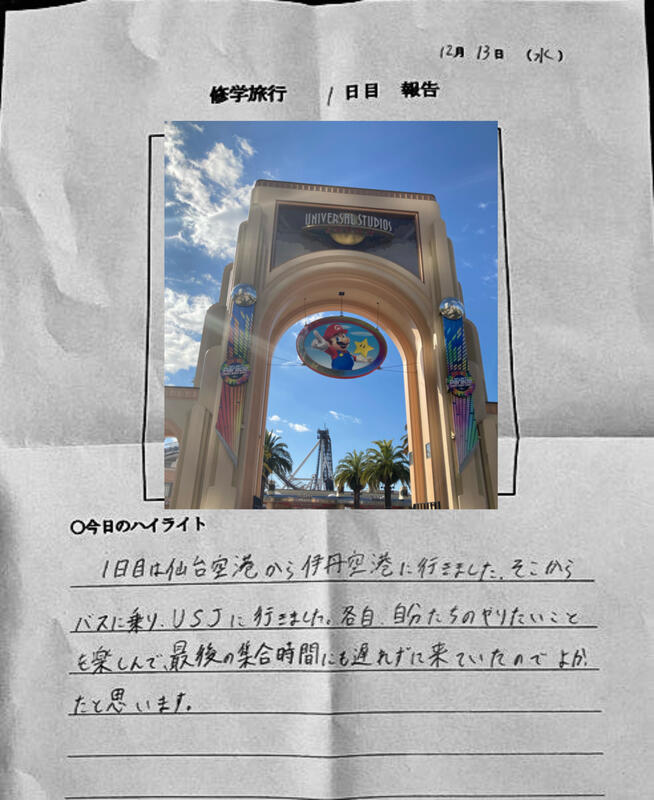 12月 13日 (水)
修学旅行 1日目 報告
UNIVERSAL STUDIOS
○今日のハイライト
1日目は仙台空港から伊丹空港に行きました。そこから
バスに乗り、USJに行きました。各自、自分たちのやりたいこと
を楽しんで、最後の集合時間にも遅れずに来ていたのでよかっ
たと思います。